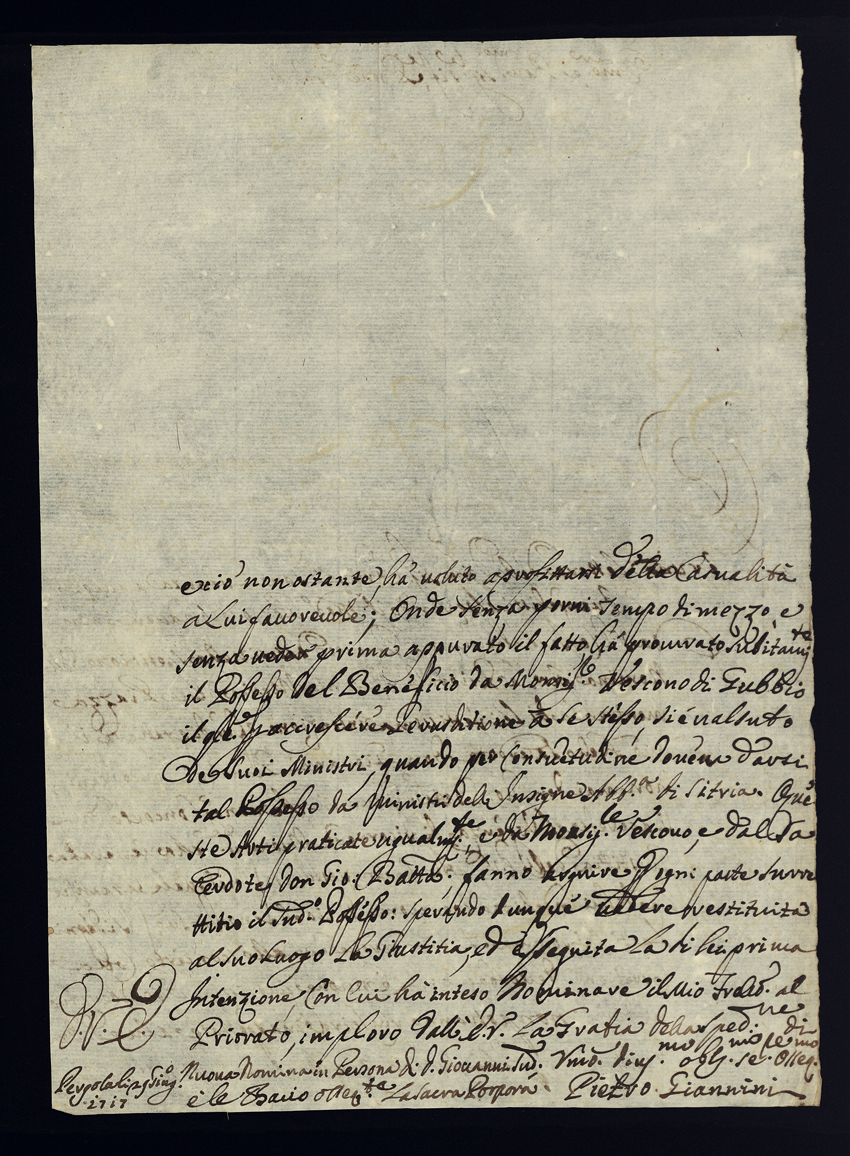 e ciò non ostante, ha voluto aprofittarsi della Casualità
a Lui favorevole; Onde senza porvi tempo di mezzo e
senza veder prima appurato il fatto hà procurato subitam.te
il Possesso del Benéficio da Monsig.r Vescovo di Gubbio
il q.le accrescére a se stésso, si é valsuto
de suoi Ministri, quando per Consuetudine doueua darsi
tal Possesso da Ministri della Insigne Abb.a di Sitria. Que
ste Arti praticate ugualm.te e da Monsig.r Vescovo, e dal Sa
cerdote Don Gio: Batta. fanno ésquire ogni parte surre
ttitio il Sud.o Possésso: sperando dunqué uedere restituita
al suo Luogo La Giustitia, ed esseguita La di lei prima
Intenzione Con lui hà inteso Nominare il Mio Frello. al
Priorato, imploro dall' La Gratia della sped.ne di
Nuova Nomina in Persona di D. Giovanni sud. Um.o diuot.mo oblig. se osseq.mo
e le Bacio osseq.te La Sacra Porpora Pietro Giannini
Pergola li 29 Giug.o
1717